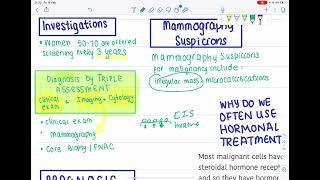 Investigations
• Women 50-70 are offered
screening every 3 years
Diagnosis by TRIPLE
ASSESSMENT
clinical
exam + Imaging + Cytology
• clinical exam
• mammography
• Core Biopsy / FNAC
Mammography
Suspicions
Mammography Suspicions
for malignancy include:
irregular mass, microcalcifications
CIS
Invasive
WHY DO WE
OFTEN USE
HORMONAL
TREATMENT
Most malignant cells have
steroidal hormone recept
and so they have hormon
PROGNOSIS